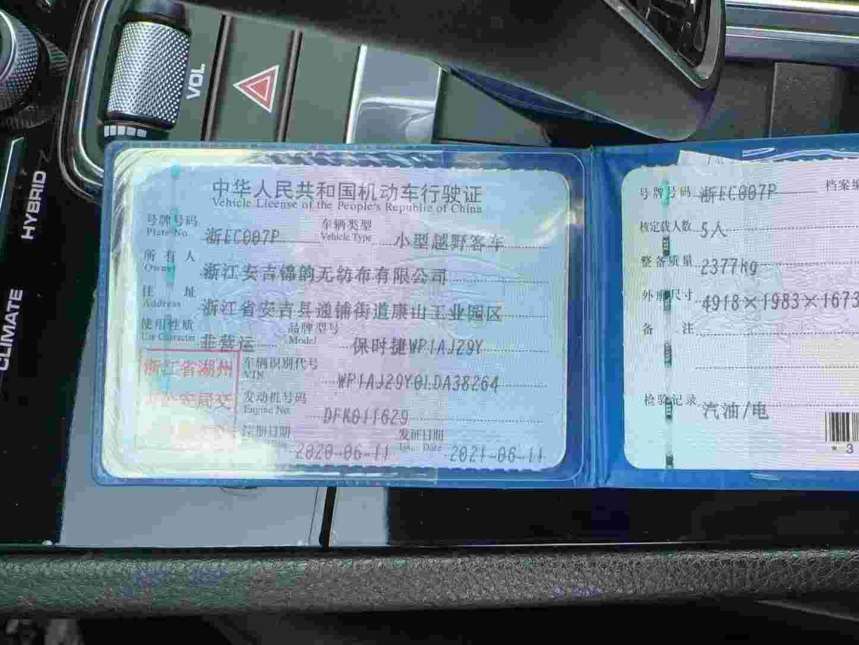 VOL
HYBRID
CLIMATE
中华人民共和国机动车行驶证
Vehicle License of the People's Republic of China
号牌号码 浙EC007P 车辆类型 小型越野客车
Plate No. Vehicle Type
所有人 浙江安吉锦韵无纺布有限公司
Owner
住址 浙江省安吉县递铺街道康山工业园区
Address
使用性质 非营运 品牌型号 保时捷WP1AJ29Y
Use Character Model
浙江省湖州
车辆识别代号 WP1AJ29Y0LDA38264
VIN
发动机号码 DFK011629
Engine No.
注册日期 2020-06-11 发证日期 2021-06-11
Issue Date
号牌号码 浙EC007P 档案编
核定载人数 5人
整备质量 2377kg
外廓尺寸 4918×1983×1673
备注
检验记录 汽油/电
*3